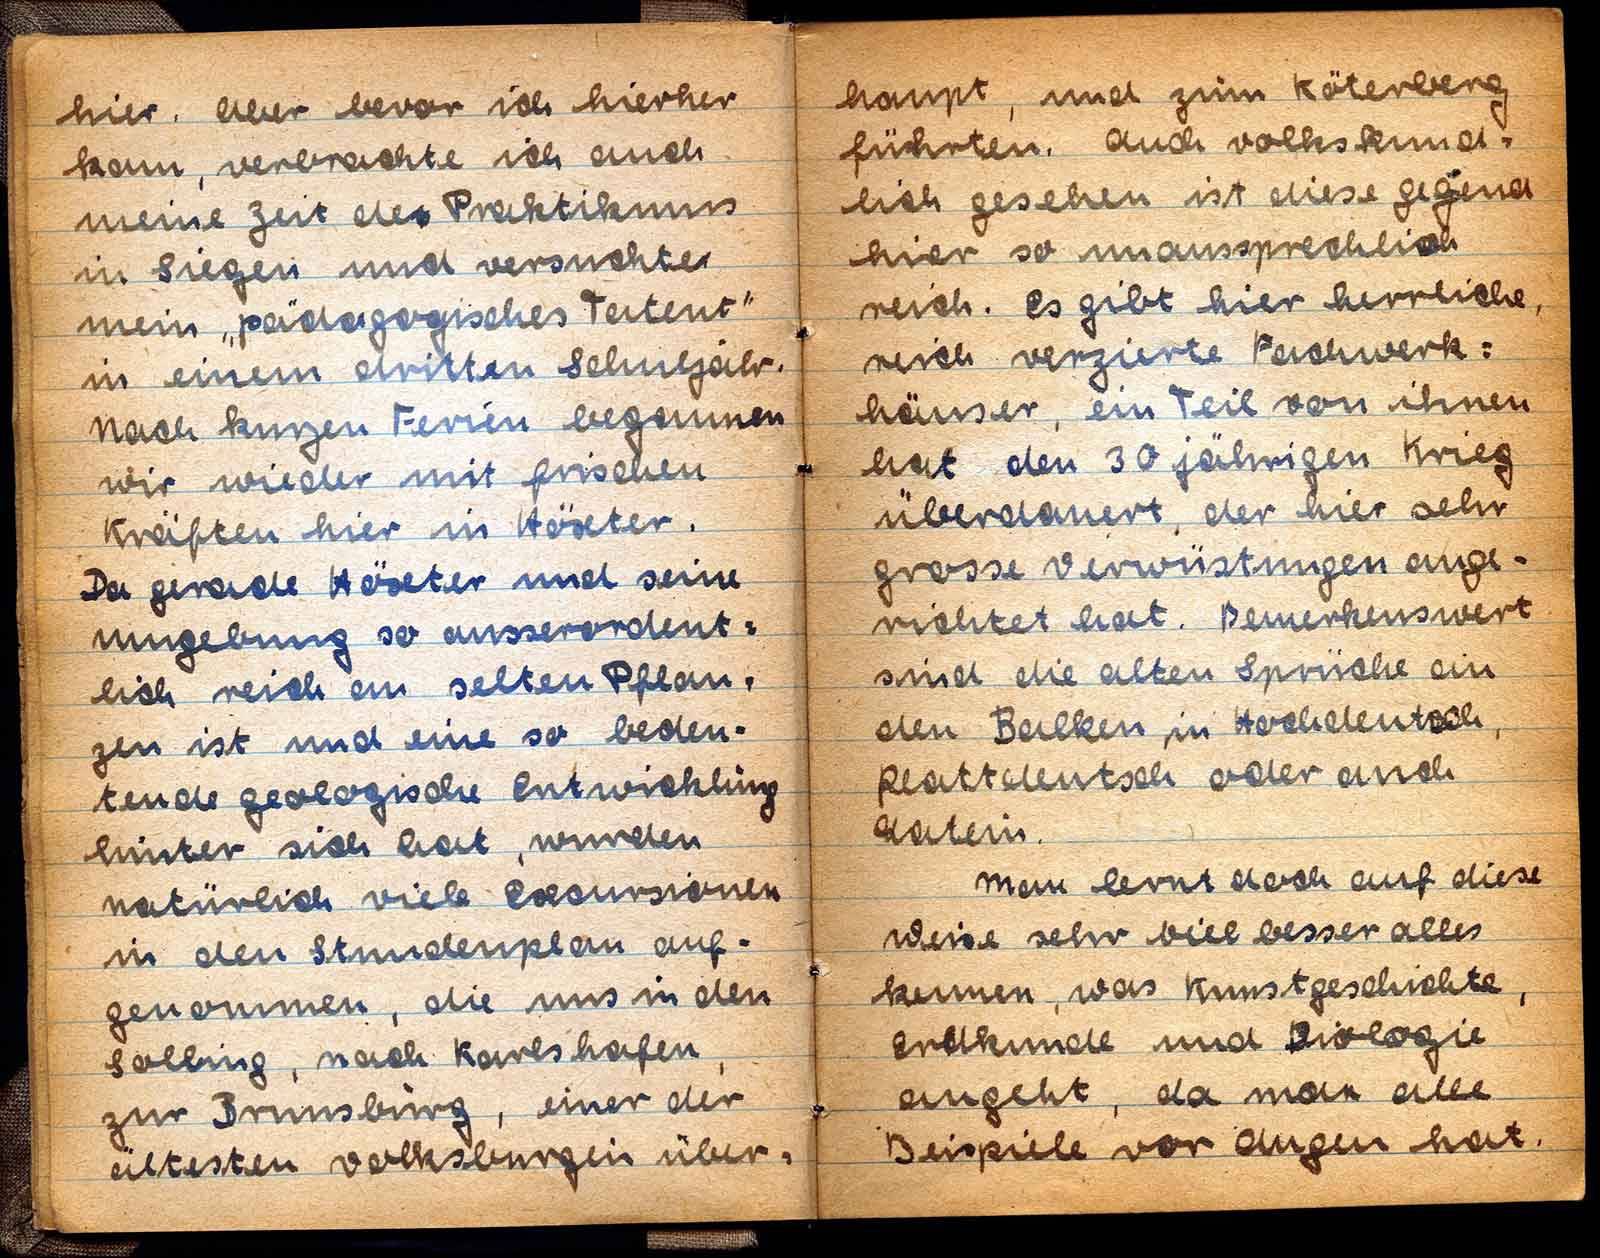 hier. Aber bevor ich hierher
kam, verbrachte ich auch
meine Zeit des Praktikums
in Siegen und versuchte
mein „pädagogisches Talent"
in einem dritten Schuljahr.
Nach kurzen Ferien begannen
wir wieder mit frischen
Kräften hier in Höxter.
Da gerade Höxter und seine
Umgebung so ausserordent=
lich reich an selten Pflan-
zen ist und eine so bedeu-
tende geologische Entwicklung
hinter sich hat, wurden
natürlich viele Excursionen
in den Stundenplan auf-
genommen, die uns in den
Solling, nach Karlshafen,
zur Brunsburg, einer der
ältesten Volksburgen über=
haupt, und zum Köterberg
führten. Auch volkskund=
lich gesehen ist diese Gegend
hier so unaussprechlich
reich. Es gibt hier herrliche,
reich verzierte Fachwerk=
häuser, ein Teil von ihnen
hat den 30 jährigen Krieg
überdauert, der hier sehr
grosse Verwüstungen ange-
richtet hat. Bemerkenswert
sind die alten Sprüche an
den Balken in Hochdeutsch,
Plattdeutsch oder auch
Latein.
Man lernt doch auf diese
Weise sehr viel besser alles
kennen, was Kunstgeschichte,
Erdkunde und Biologie
angeht, da man alle
Beispiele vor Augen hat.